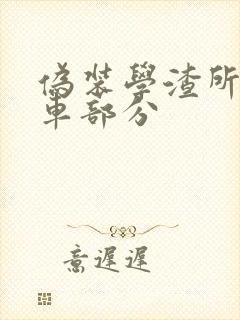 偽裝學渣所
車部分
意遲遲